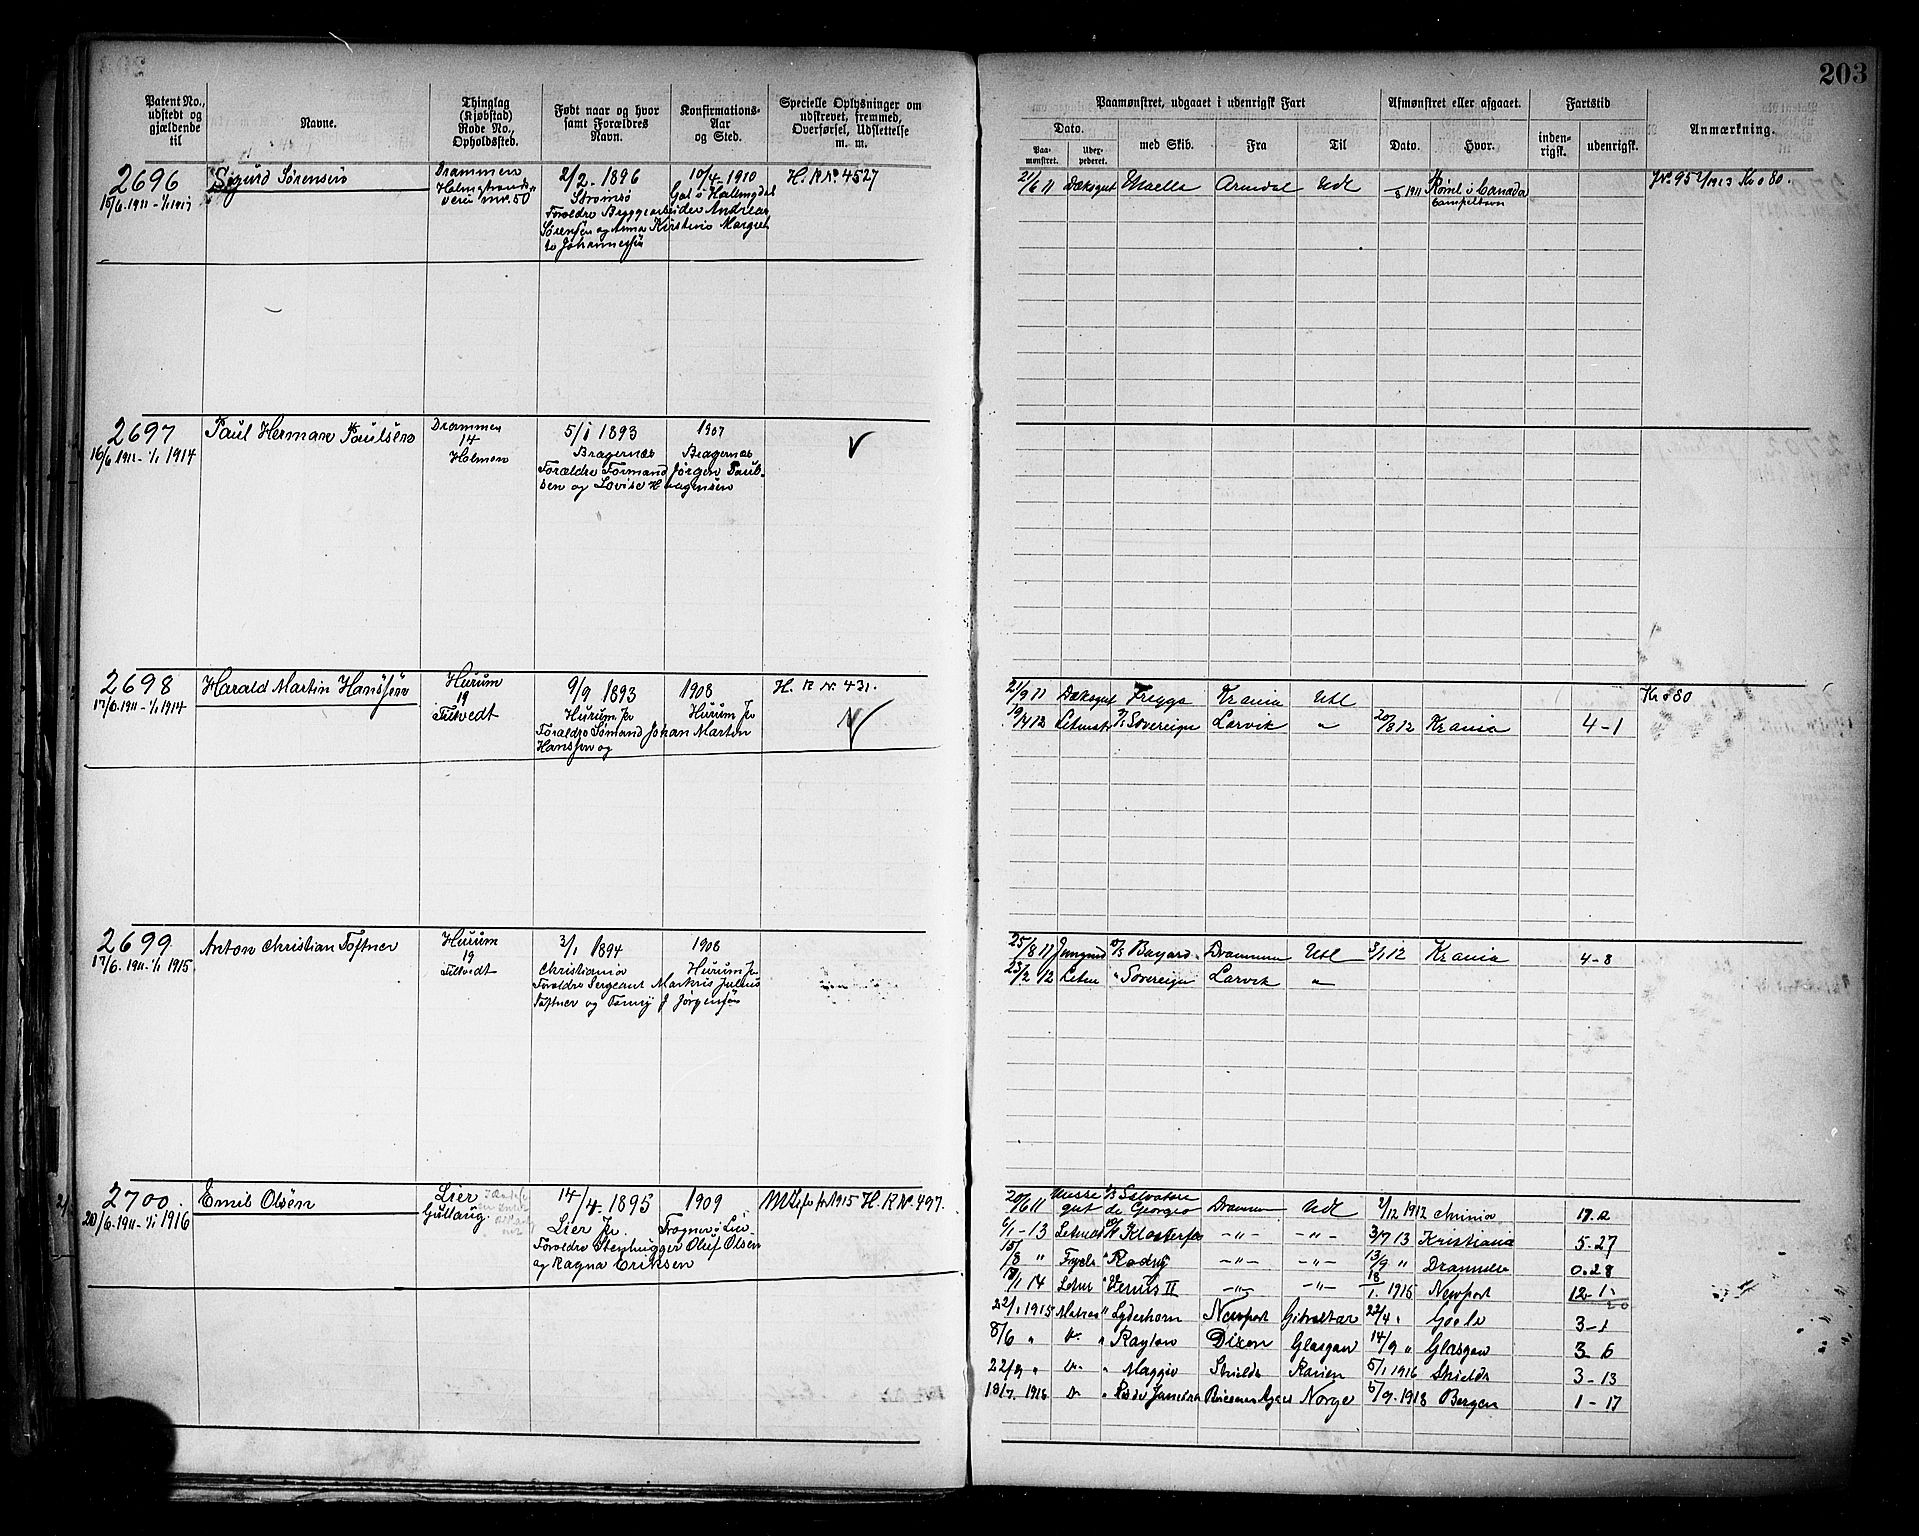 203
Patent No., udstedt og gjældende til
Navne.
Thinglag (Kjøbstad) Rode No., Opholdssteb.
Født naar og hvor samt Forældres Navn.
Konfirmations-Aar og Sted.
Specielle Oplysninger om udskrevet, fremmed, Overførsel, Udslettelse m. m.
Paamønstret, udgaaet i udenrigsk Fart
Afmønstret eller afgaaet.
Fartstid
Anmærkning.
Dato.
Paa-mønstret.
med Skib.
Fra
Til
Dato.
Hvor.
inden-rigsk.
udenrigsk.
2696
15/6. 1911 - 1/1 1917
Sigurd Sørensen
Drammen
50
2/2. 1896
Strømsø
Forældre Byggearbeider Andreas
Sørensen og Anna Kirstine Margret
te Johannessen
10/4 - 1910
Gol i Hallingdal
H. R No 4527
21/6 11 Dæksgut Arendal Udl 1911 Canada
Campeltown
Kr 0 80.
2697
16/6. 1911 - 1/1 1914
Paul Herman Paulsen
Drammen
14
Holmen
5/1 1893
Bragernes
Forældre Formand Jørgen Paul-
sen og Lovise Haagensen
1907
Bragernes
2698
17/6. 1911 - 1/1 1914
Harald Martin Hanssen
Hurum
19
Tiltvedt
9/9 1893
Hurum Pr
Forældre Sømand Johan Martin
Hanssen og
1908
Hurum Pr
H. R No. 431.
21/9 11 Dæksgut Frigga Krania Utl
Kr 0 80
19/4 12 Letmat Sovereign Larvik " 20/8 12 Krania 4 - 1
2699
17/6. 1911 - 1/1 1915
Anton Christian Toftner
Hurum
19
Tiltvedt
3/1 1894
Christiania
Forældre Sergeant Markus Julius
Toftner og Fanny J Jørgensen
1908
Hurum Pr
25/8 11 Jungmd Bayard Drammen Utl 3/1 12 Krania 4 - 8
23/2 12 Letm " Sovereign Larvik "
2700
20/6. 1911 - 1/1 1916
Emil Olsen
Lier
Gullaug
14/4. 1895
Lier Pr.
Forældre Stenhugger Oluf Olsen
og Ragna Eriksen
1909
Frogner i Lier
1915 H. R No. 497.
20/6 11 Messegut Salvatore di Georgio Drammen Udl 2/12 1912 17. 2
6/1 - 13 Letmat Klosterfos - " - - " - 3/7 13 Kristiana 5. 27
15/8 " " Rødby - " - - " - 13/9 " Drammen 0. 28
1/1 14 Letm " Venus II - " - - " - 18/1. 1915 Newport 12 - 1
22/1 1915 Matros " Lyderhorn Newport Gibraltar 22/4 " Goole 3 - 1
8/6 " Do " Raylton Dixon Glasgow 14/9 " Glasgow 3 6
22/9 " Do " Maggie Shields Rouen 5/1 1916 Shields 3 - 13
18/7. 1918 Do " Buenos Ayres Norge 5/9. 1918 Bergen 1 - 17